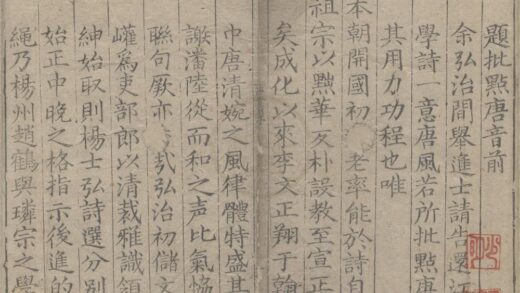 題批點唐音前
余弘治間舉進士請告還江
學詩一意唐風若所批點唐
其用力功程也唯
本朝開國初 老率能於詩自
祖宗以黜華反朴設教至宣正
矣成化以來李文正翔于翰
中唐清婉之風律體特盛其
謝潘陸從而和之声比氣協
聯句厥亦 弘治初儲文
巏為吏部郎以清裁雅識領
紳始取則楊士弘詩選分別
始正中晚之格指示後進的
繩乃楊州趙鶴與璘宗之學